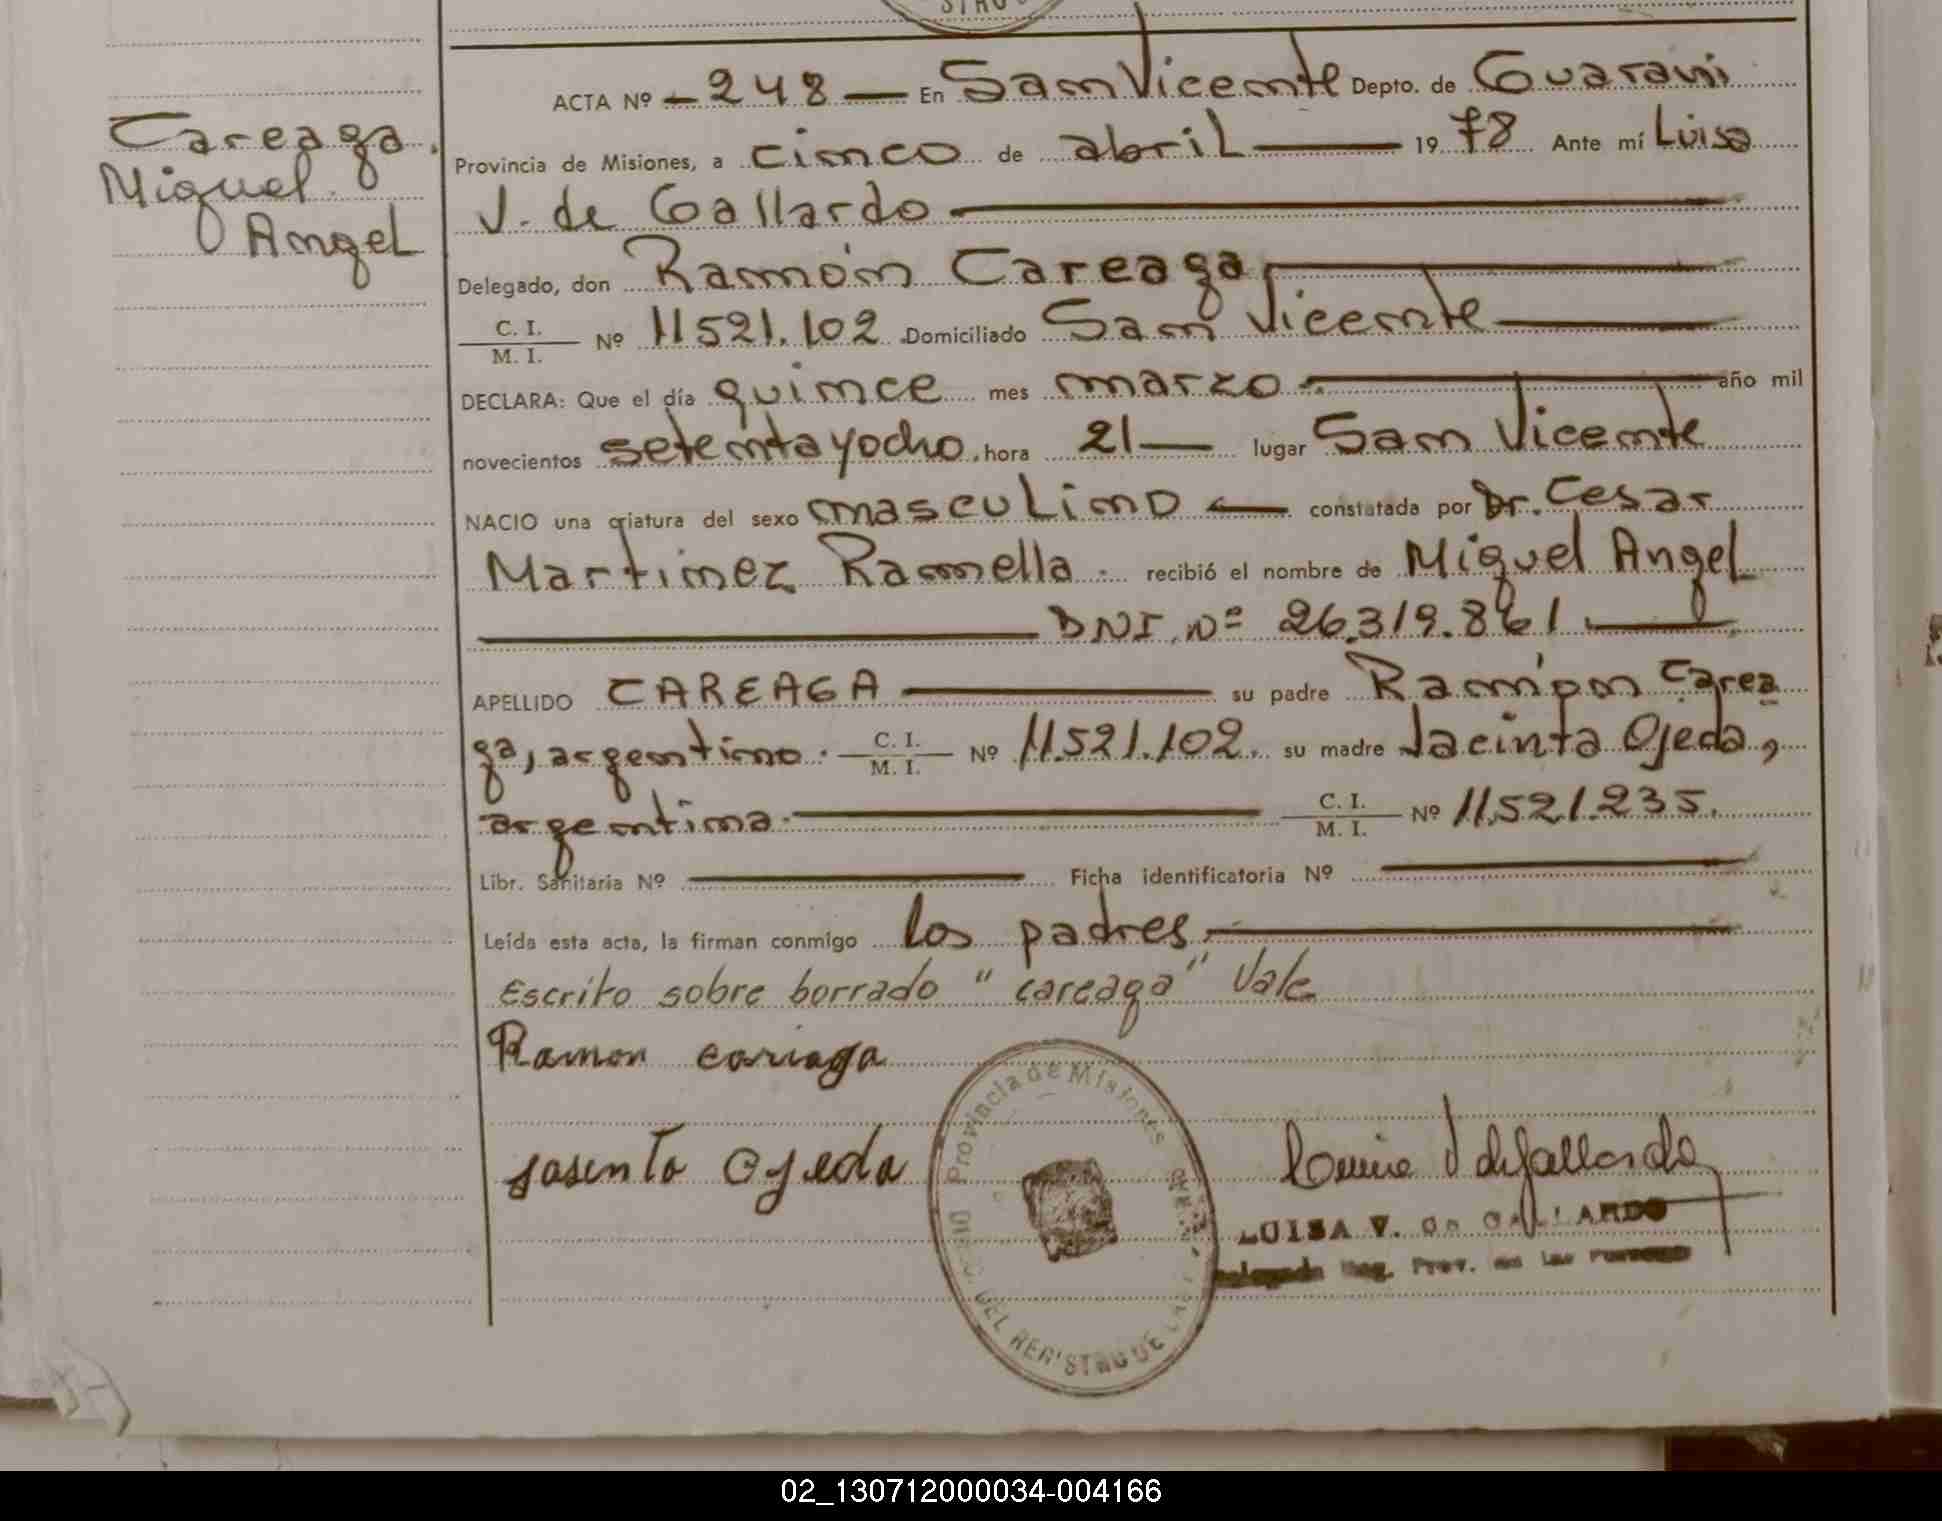 STRO
ACTA Nº - 248 — En San Vicente Depto. de Guaraní
Careaga,
Miguel
Angel
Provincia de Misiones, a cinco de abril — 1978 Ante mí Luisa
V. de Gallardo —
Delegado, don Ramón Careaga —
C. I.
M. I. Nº 11521.102 Domiciliado San Vicente —
DECLARA: Que el día quince mes marzo — año mil
novecientos setentayocho, hora 21 — lugar San Vicente
NACIO una criatura del sexo masculino — constatada por Dr. Cesar
Martinez Ramella . recibió el nombre de Miguel Angel
— DNI. Nº 26.319.861 —
APELLIDO CAREAGA — su padre Ramón Carea
ga, argentino. C. I.
M. I. Nº 11.521.102. su madre Jacinta Ojeda,
argentina. — C. I.
M. I. Nº 11.521.235.
Libr. Sanitaria Nº — Ficha identificatoria Nº —
Leída esta acta, la firman conmigo los padres, —
Escrito sobre borrado "careaga" Vale
Ramon cariaga
Provincia de Misiones
DEL REGISTRO DE LAS
Jasinta Ojeda
Luisa V de Gallardo
LUISA V. de GALLARDO
Delegada Reg. Prov. de las Personas
02_130712000034-004166